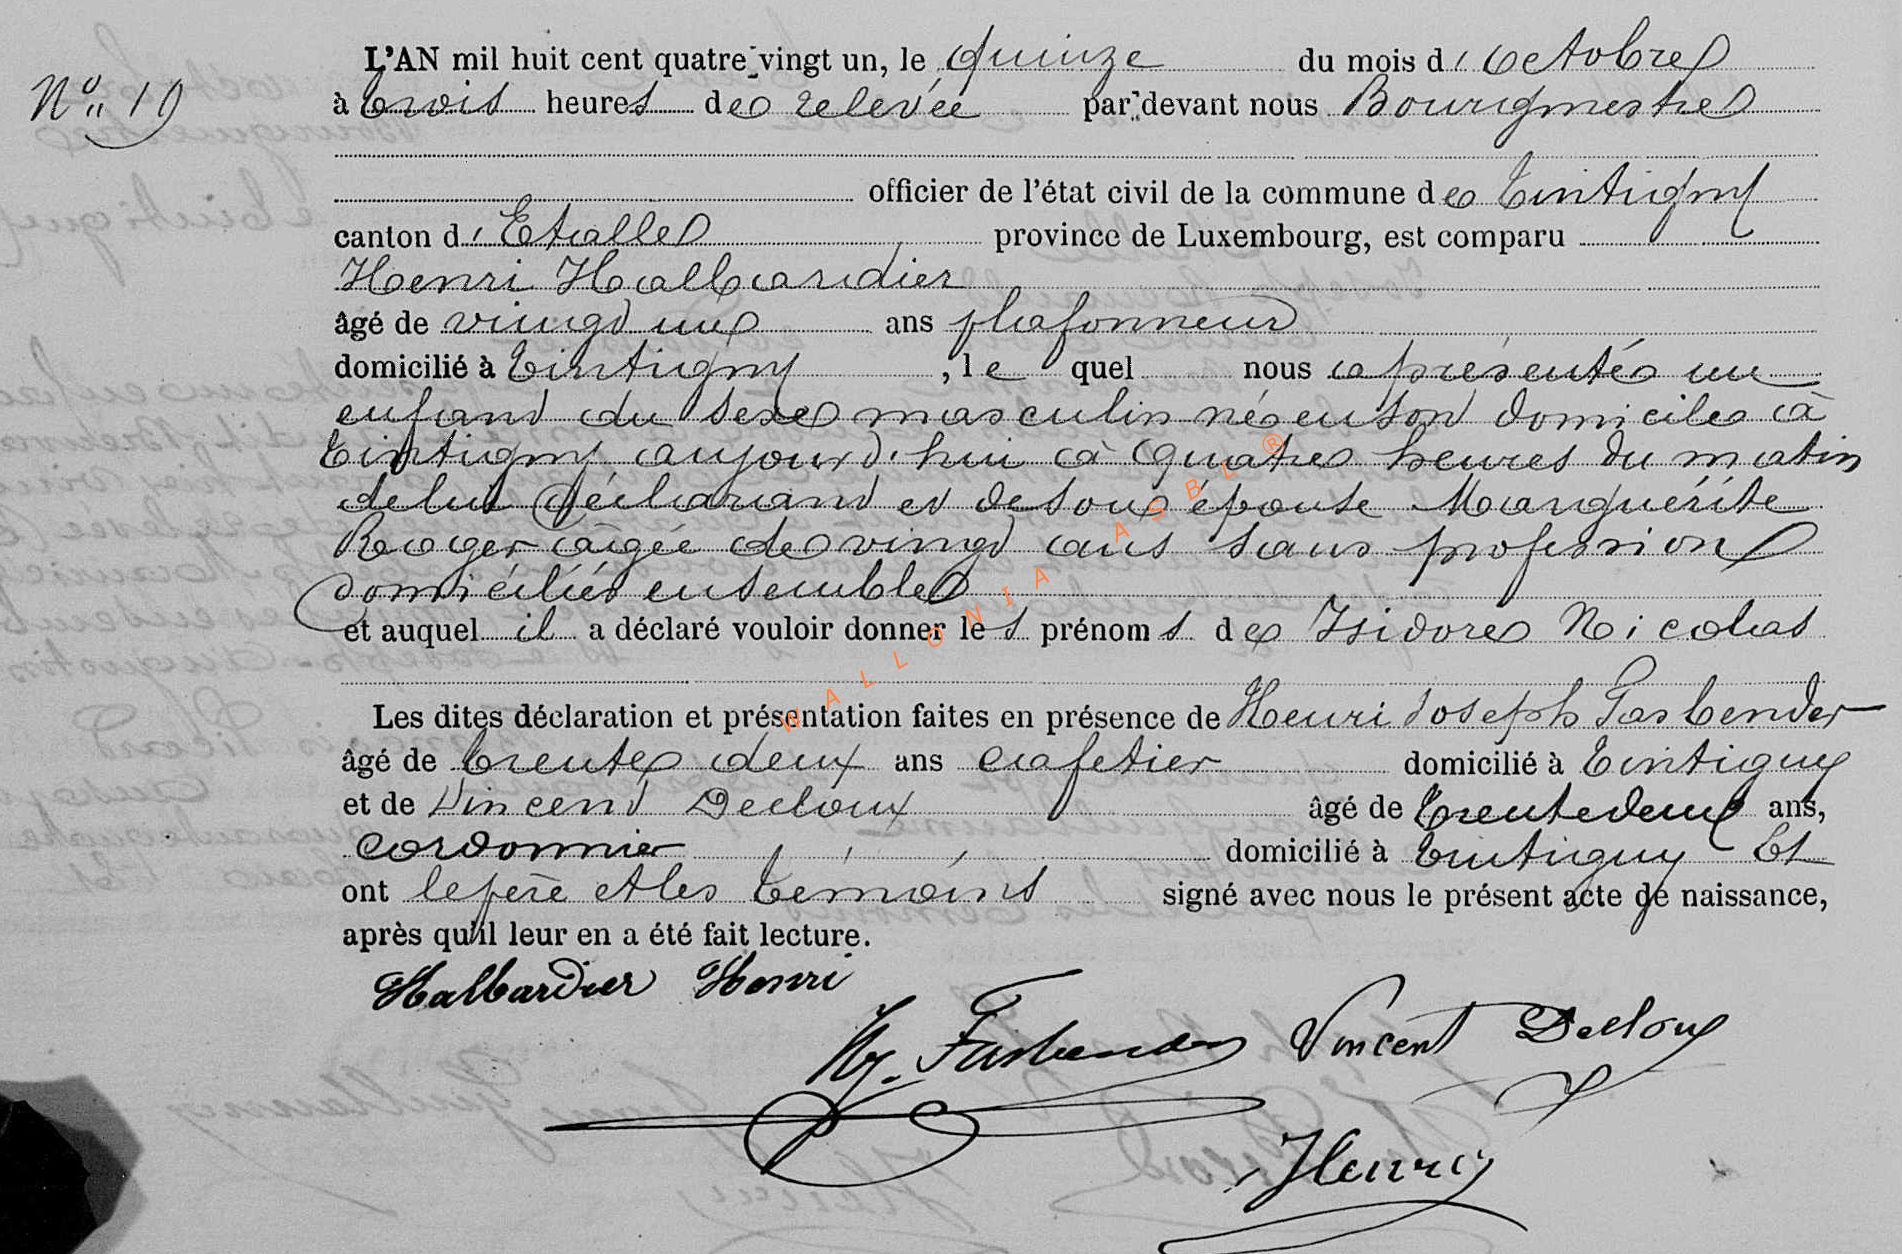 L'AN mil huit cent quatre-vingt un, le quinze du mois d'octobre
N° 19
à trois heures de relevée par-devant nous Bourgmestre
officier de l'état civil de la commune de Tintigny
canton d'Etalle province de Luxembourg, est comparu
Henri Halbardier
âgé de vingd une ans plafonneur
domicilié à Tintigny, le quel nous a présenté un
enfand du sexe masculin né en son domicile à
Tintigny aujourd'hui à quatre heures du matin
de lui déclarand et de son épouse Marguérite
Roger âgée de vingd ans sans profession
domiciliés ensemble
et auquel il a déclaré vouloir donner les prénoms de Isidore Nicolas
Les dites déclaration et présentation faites en présence de Henri Joseph Fasbender
âgé de trente deux ans cafetier domicilié à Tintigny
et de Vincend Decloux âgé de trente deux ans,
cordonnier domicilié à Tintigny Et
ont le père et les témoins signé avec nous le présent acte de naissance,
après qu'il leur en a été fait lecture.
Halbardier Henri
Hy. Fasbender Vincent Decloux
Henry
WALLONIA ASBL ®